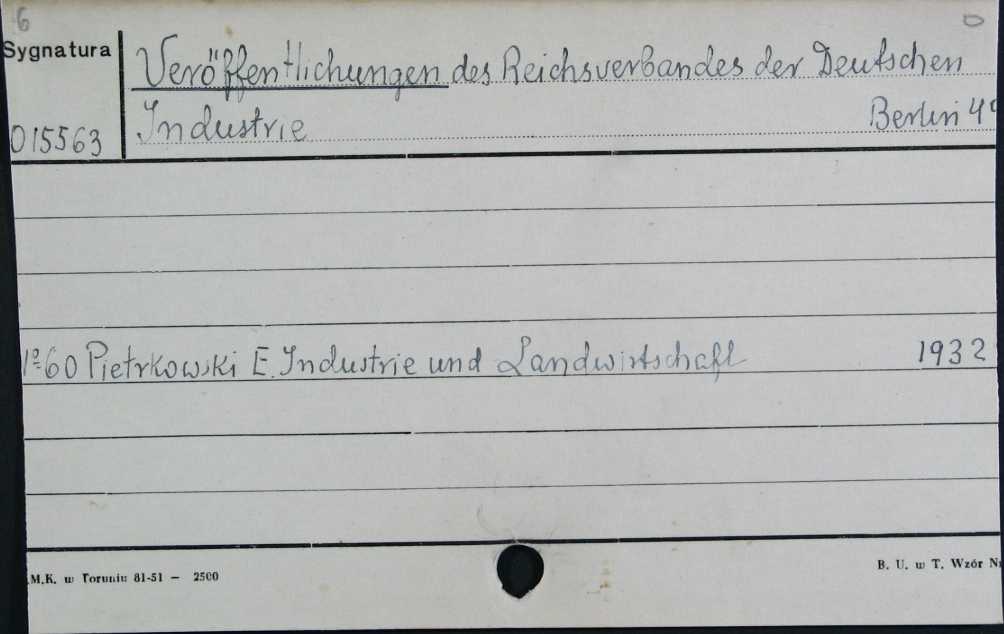 6 O
Sygnatura
Veröffentlichungen des Reichsverbandes der Deutschen
015563 Industrie Berlin 4°
№ 60 Pietrkowski E. Industrie und Landwirtschaft 1932
M.K. w Toruniu 81-51 — 2500
B. U. w T. Wzór